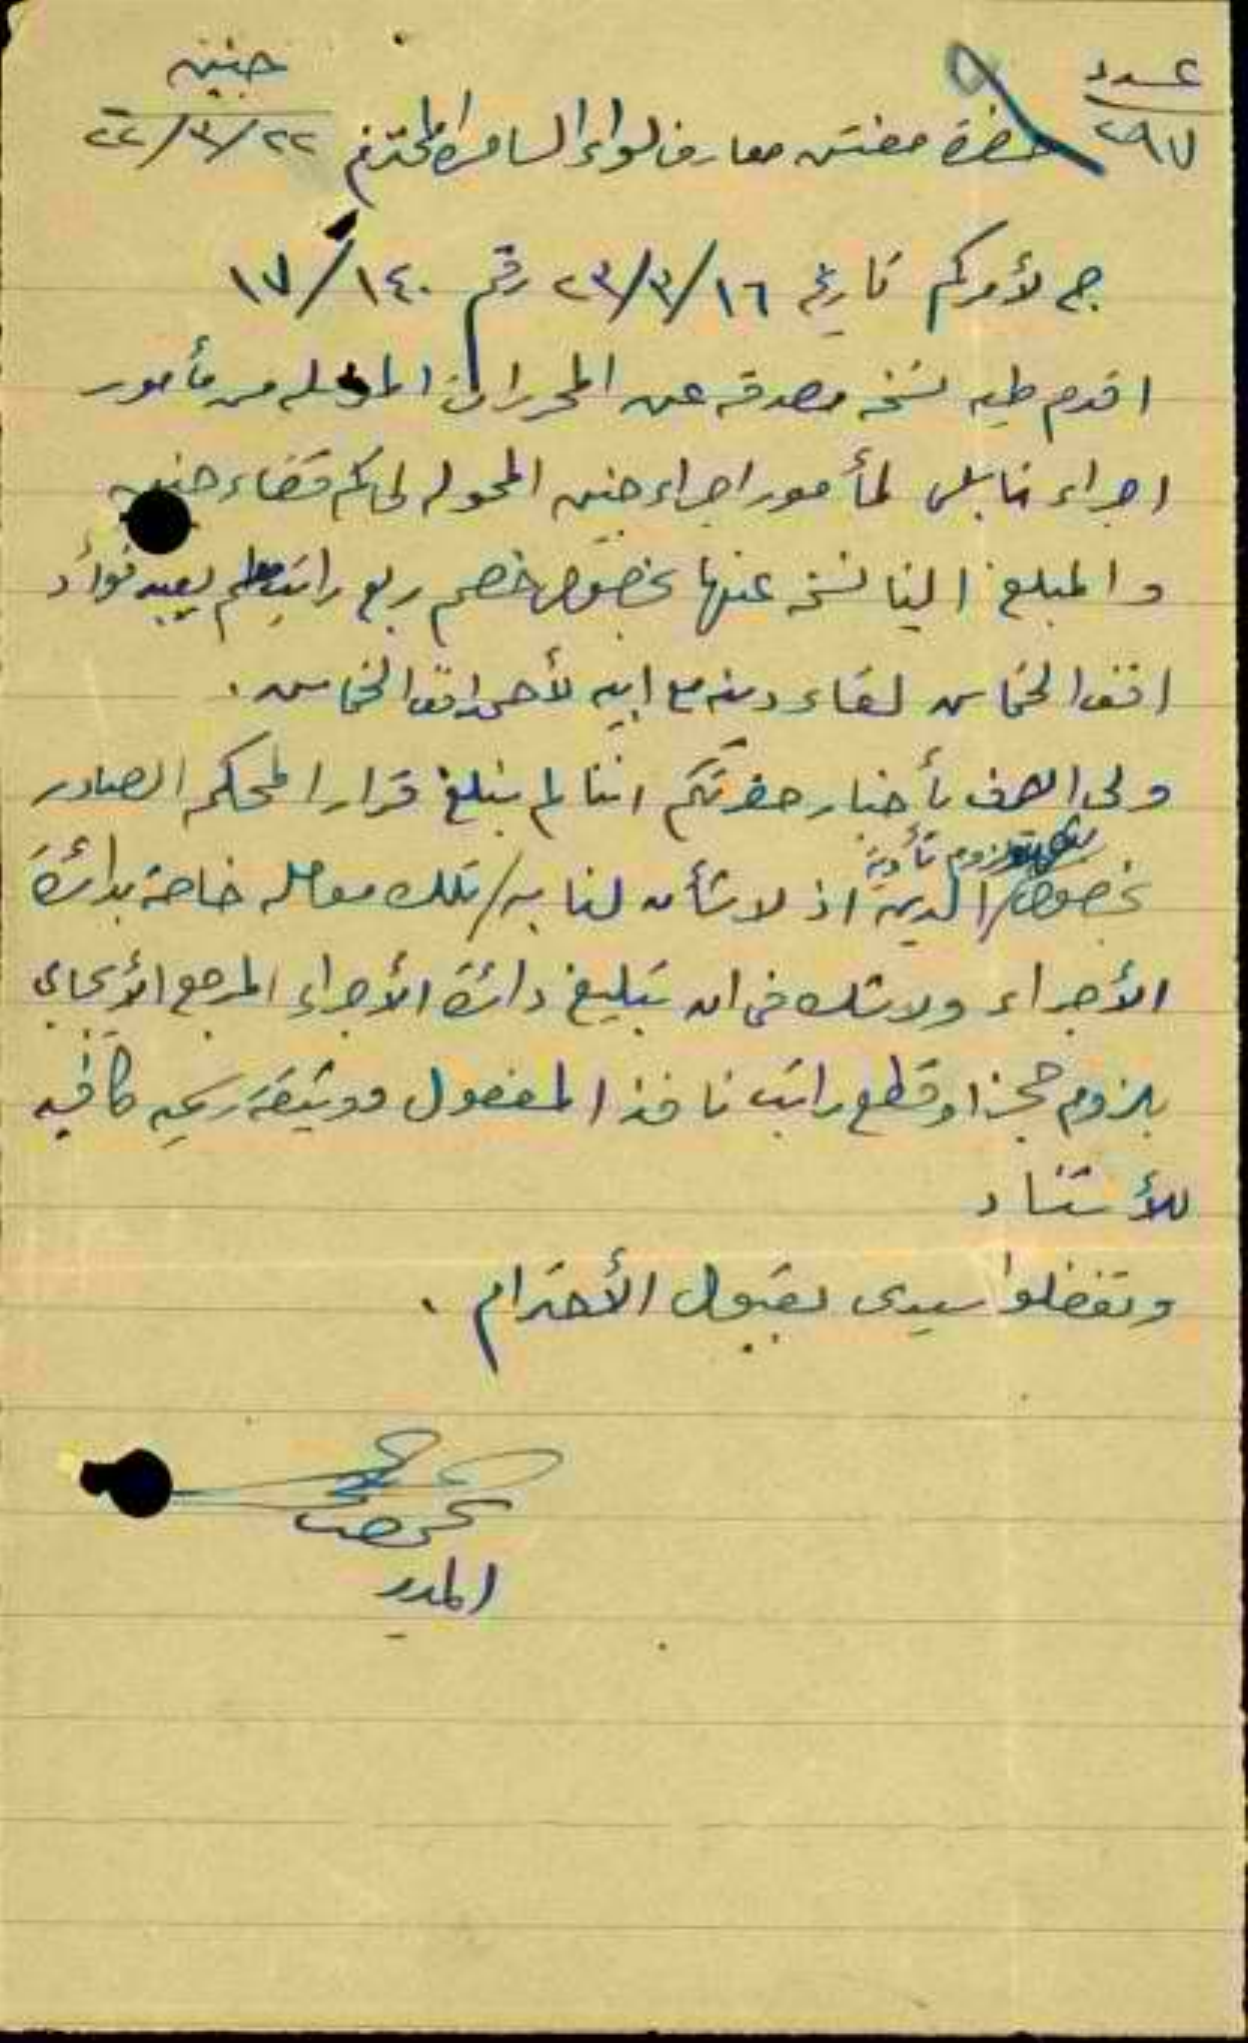 عدد
٢٩٧
جنين
٢٢/٣/٢٣
حضرة مفتش معارف لواء السامرة المحترم
ج لأمركم تاريخ ١٦/٣/٢٣ رقم ١٤٠/١٧
اقدم طيه نسخه مصدقه عن المحررات المرسله من مأمور
اجراء نابلس لمأمور اجراء جنين المحوله لحاكم قضاء جنين
والمبلغ الينا نسخه عنها بخصوص خصم ربع راتب معلم يعبد فؤاد
افندي الخماش لقاء دينه مع ابيه لأحمد افندي الخماش.
ولي الشرف بأخبار حضرتكم اننا لم نبلغ قرار المحكمه الصادر
لزوم تأدية
بخصوص الدين اذ لا شأن لنا به/ تلك معامله خاصة بدائرة
الأجراء ولا شك في ان تبليغ دائرة الأجراء المرجع الأيجابي
بلزوم حجز او قطع راتب نافذ المفعول ووثيقة رسميه كافيه
للأستناد
وتفضلوا سيدي بقبول الأحترام.
المدير